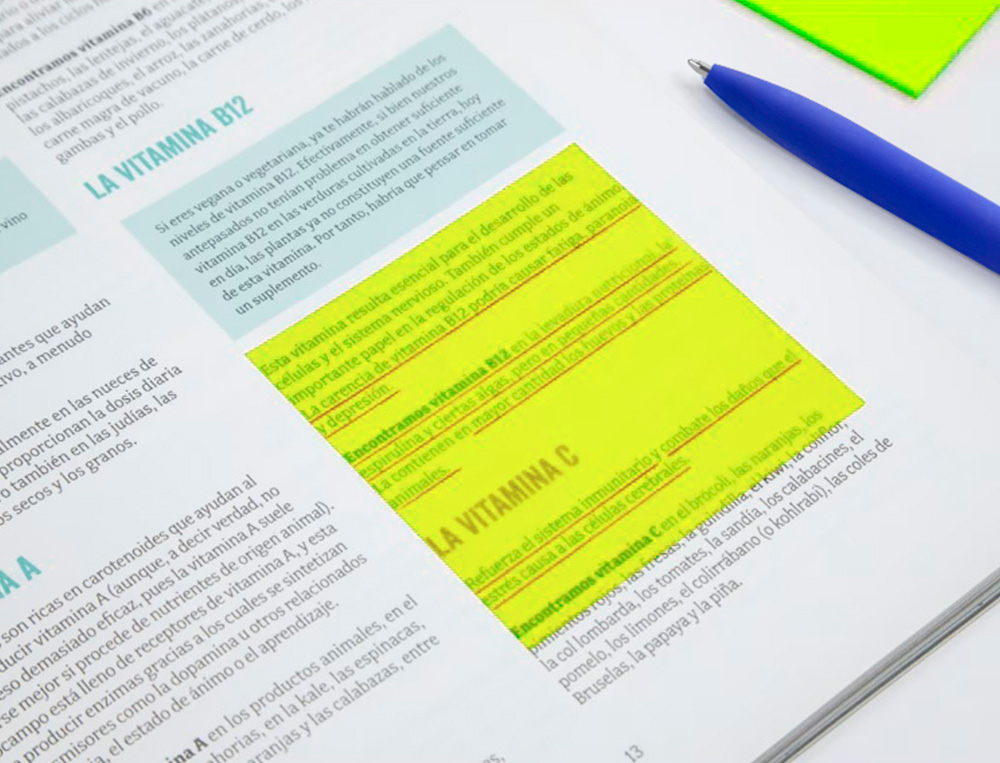 Encontramos vitamina B6 en
pistachos, las lentejas, el aguacate
las calabazas de invierno, los plátanos
los albaricoques, el arroz, las zanahorias,
carne magra de vacuno, la carne de cerdo, los
gambas y el pollo.
LA VITAMINA B12
Si eres vegana o vegetariana, ya te habrán hablado de los
niveles de vitamina B12. Efectivamente, si bien nuestros
antepasados no tenían problema en obtener suficiente
vitamina B12 en las verduras cultivadas en la tierra, hoy
en día, las plantas ya no constituyen una fuente suficiente
de esta vitamina. Por tanto, habría que pensar en tomar
un suplemento.
Esta vitamina resulta esencial para el desarrollo de las
células y el sistema nervioso. También cumple un
importante papel en la regulación de los estados de ánimo.
La carencia de vitamina B12 podría causar fatiga, paranoia
y depresión.
Encontramos vitamina B12 en la levadura nutricional, la
espirulina y ciertas algas, pero en pequeñas cantidades.
La contienen en mayor cantidad los huevos y las proteínas
animales.
LA VITAMINA C
Refuerza el sistema inmunitario y combate los daños que el
estrés causa a las células cerebrales.
Encontramos vitamina C en el brócoli, las naranjas, los
pimientos rojos, las fresas, la guindilla, el kiwi, la coliflor,
la col lombarda, los tomates, la sandía, los calabacines, el
pomelo, los limones, el colirrábano (o kohlrabi), las coles de
Bruselas, la papaya y la piña.
vino
antes que ayudan
tivo, a menudo
almente en las nueces de
proporcionan la dosis diaria
o también en las judías, las
os secos y los granos.
A A
son ricas en carotenoides que ayudan al
ducir vitamina A (aunque, a decir verdad, no
eso demasiado eficaz, pues la vitamina A suele
rse mejor si procede de nutrientes de origen animal).
ocampo está lleno de receptores de vitamina A, y esta
a producir enzimas gracias a los cuales se sintetizan
smisores como la dopamina u otros relacionados
ia, el estado de ánimo o el aprendizaje.
na A en los productos animales, en el
ahorias, en la kale, las espinacas,
aranjas y las calabazas, entre
13